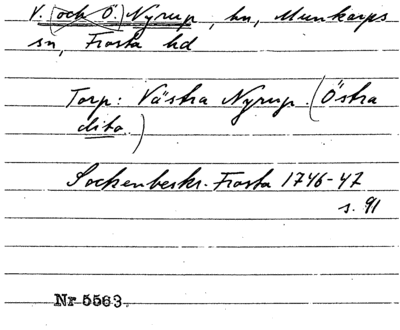 V. (och Ö.) Nyrup, hn, Munkarps
sn, Frosta hd
Torp: Västra Nyrup. (Östra
dito.)
Sockenbeskr. Frosta 1746-47
s. 91
Nr 5563.